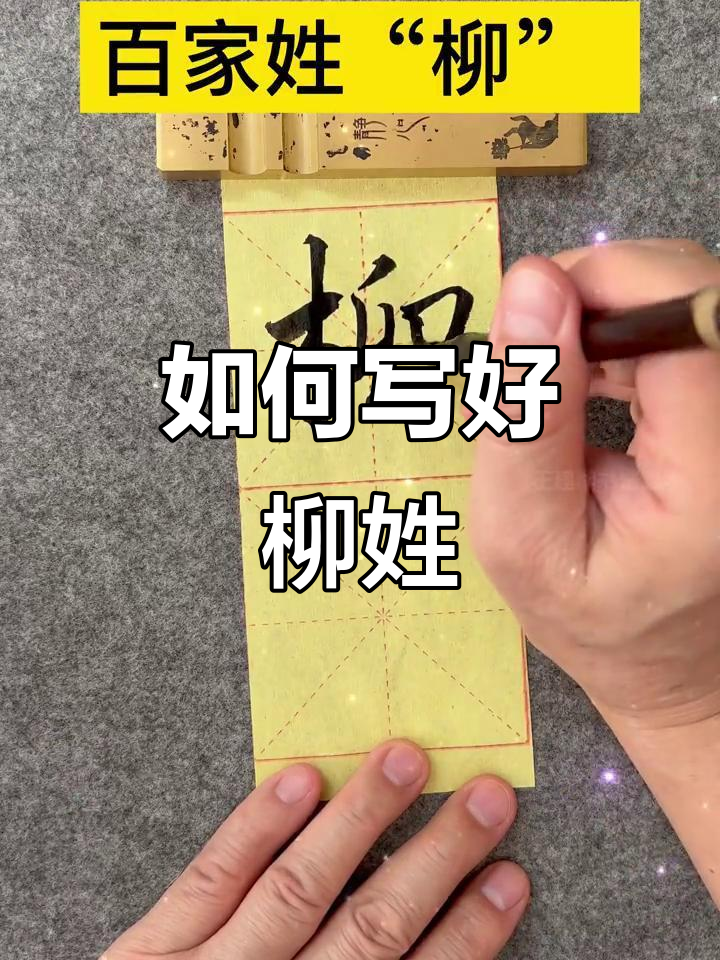 百家姓“柳”
静心
柳
如何写好
柳姓